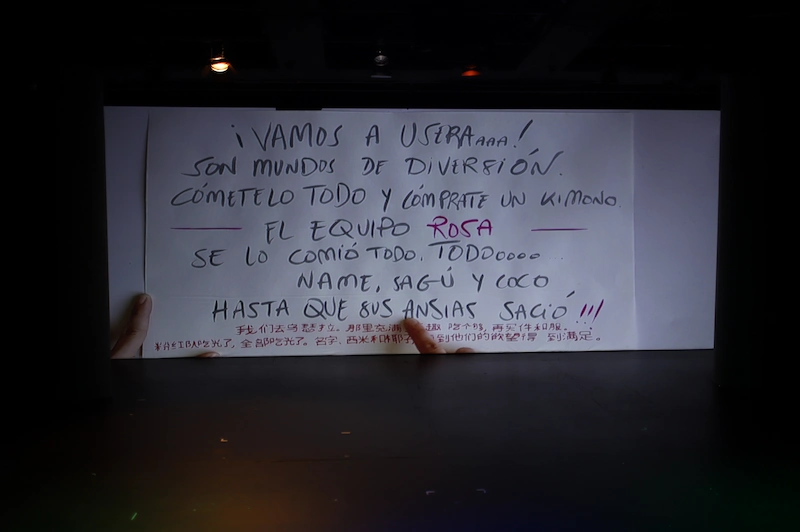 ¡VAMOS A USERAAAA!
SON MUNDOS DE DIVERSIÓN.
CÓMETELO TODO Y CÓMPRATE UN KIMONO.
EL EQUIPO ROSA
SE LO COMIÓ TODO, TODOOOOO.
NAME, SAGÚ Y COCO
HASTA QUE SUS ANSIAS SACIÓ!!!
我们去乌瑟拉。那里充满 趣 吃个够,再买件和服。
全部吃光了。名字,西米和 到他们的欲望得 到满足。